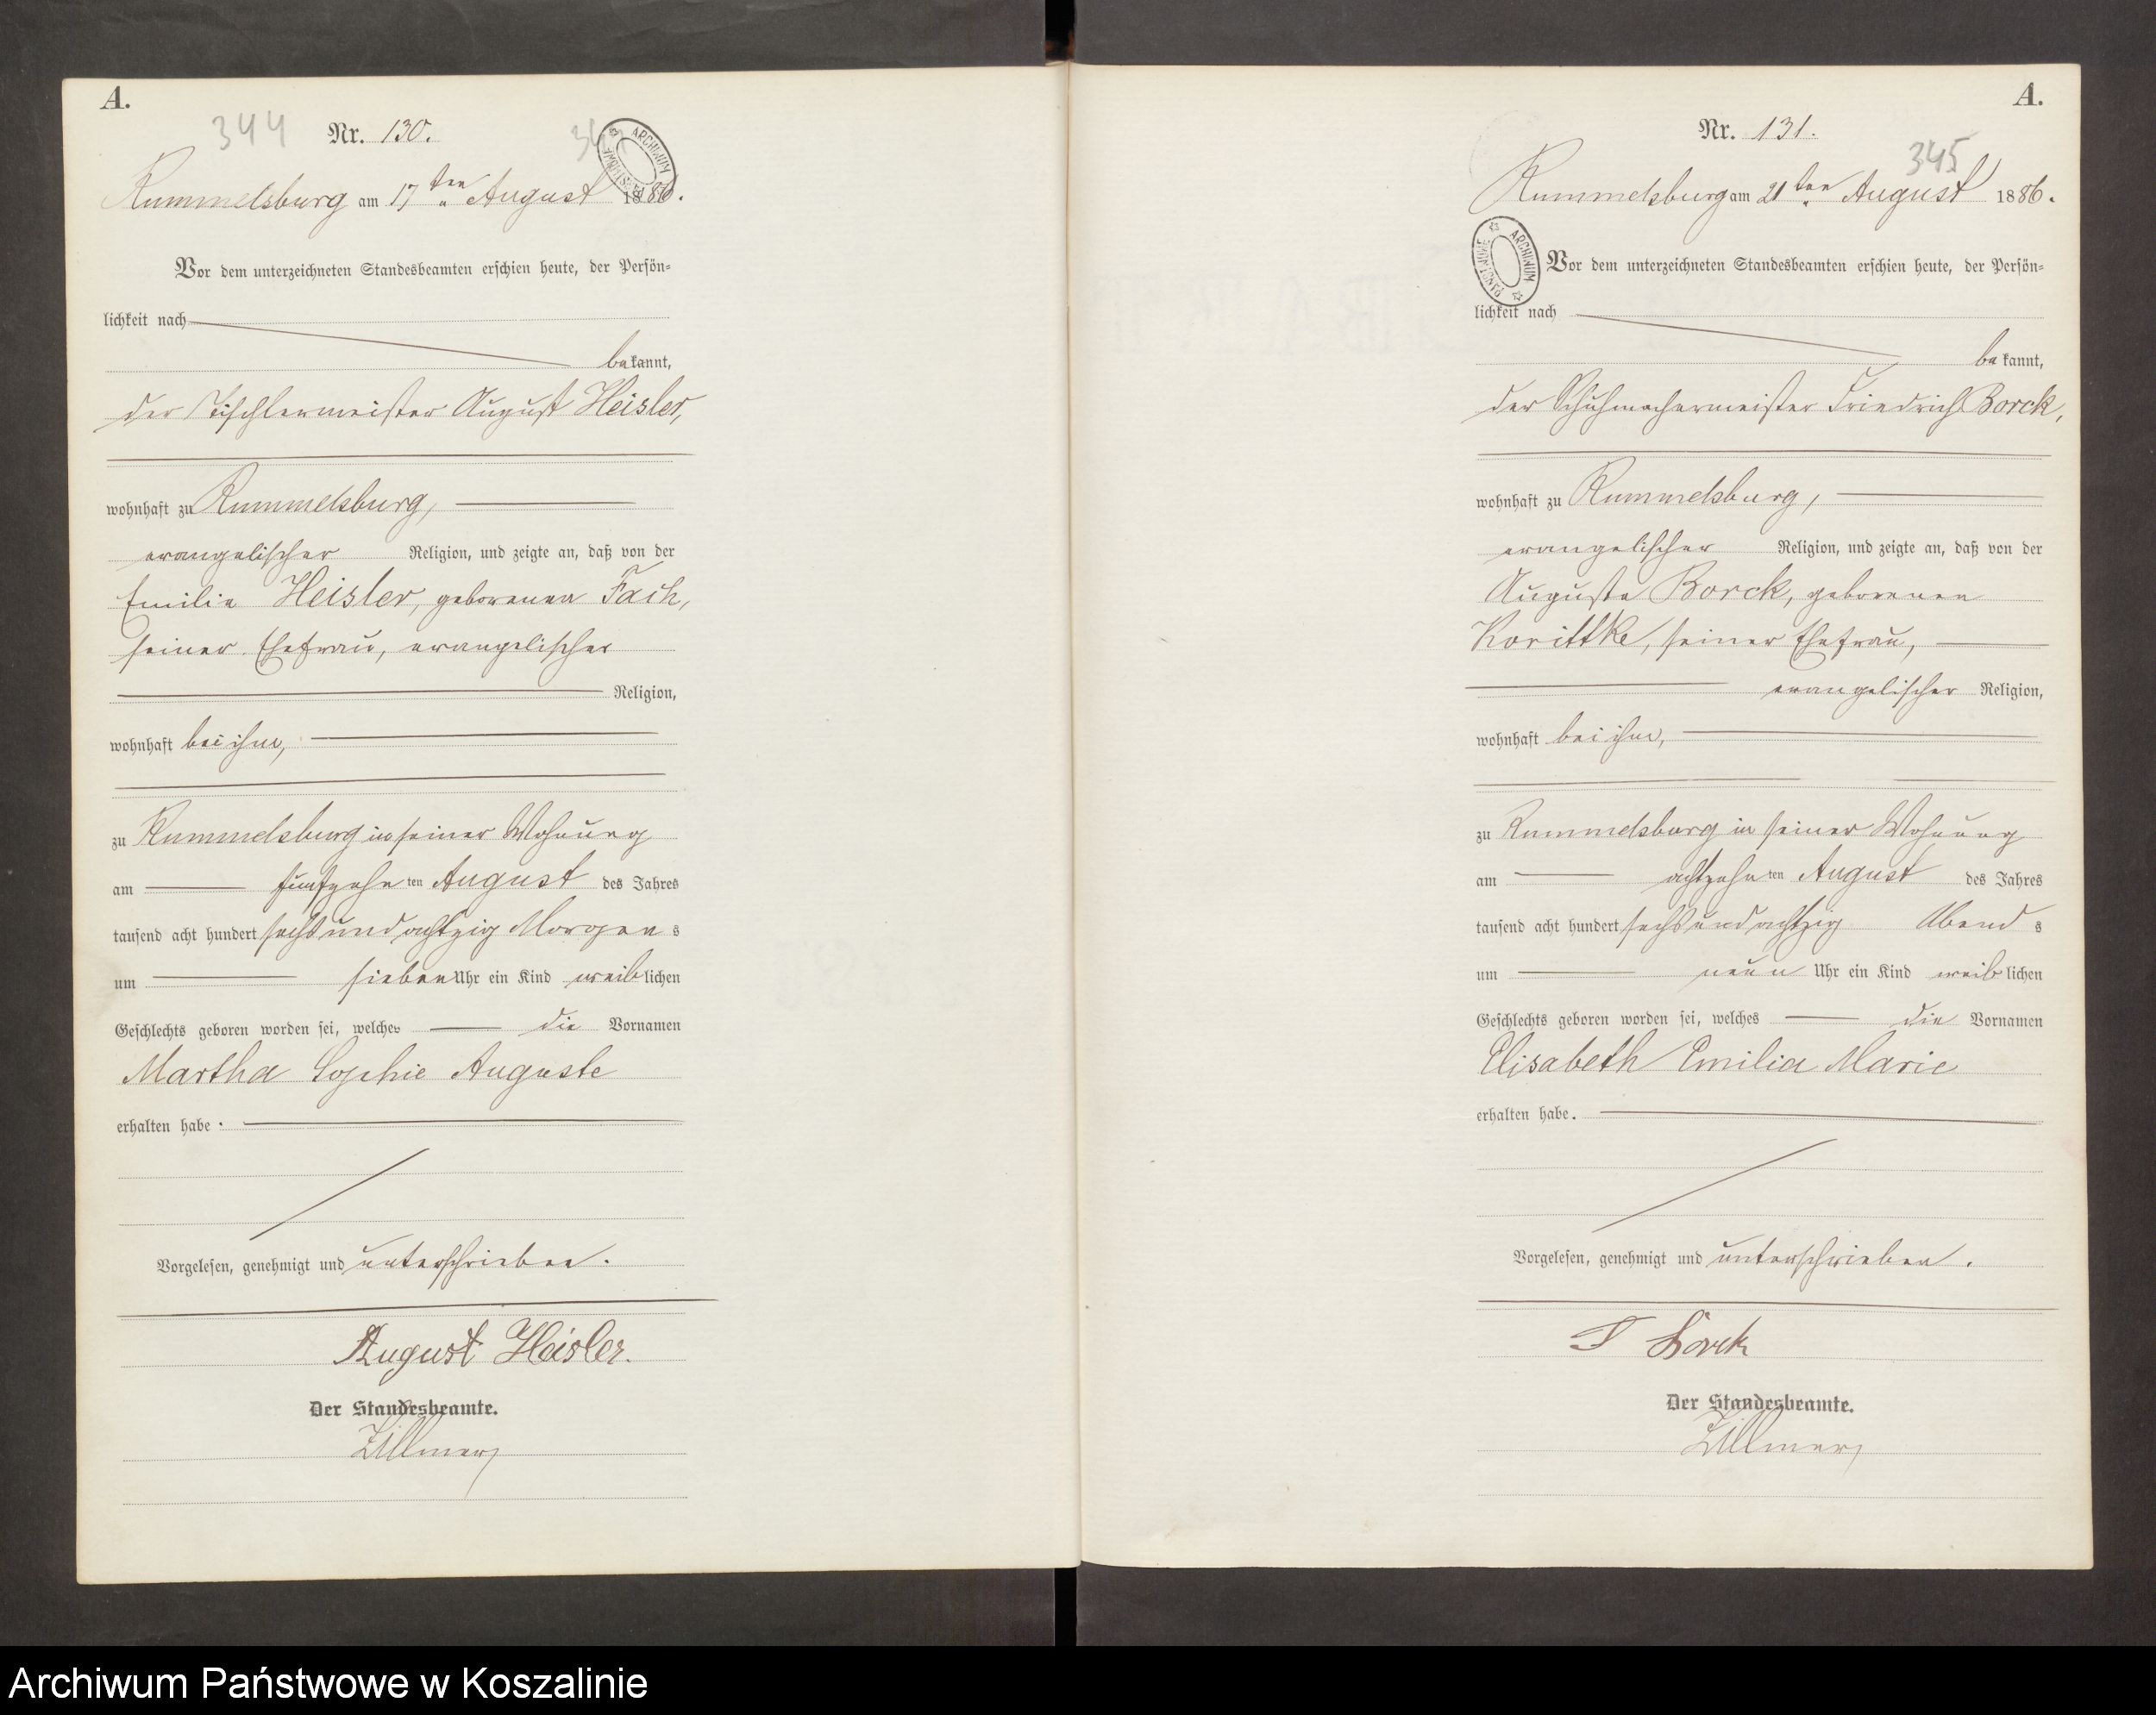 A.
344
Nr. 130.
Rummelsburg am 17ten August 1886.
Vor dem unterzeichneten Standesbeamten erschien heute, der Persön-
lichkeit nach
bekannt,
der Tischlermeister August Heisler,
wohnhaft zu Rummelsburg,
evangelischer Religion, und zeigte an, daß von der
Emilie Heisler, geborenen Fach,
seiner Ehefrau, evangelischer
Religion,
wohnhaft bei ihm,
zu Rummelsburg in seiner Wohnung
am fünfzehnten August des Jahres
tausend acht hundert sechs und achtzig Morgens
um sieben Uhr ein Kind weiblichen
Geschlechts geboren worden sei, welches die Vornamen
Martha Sophie Auguste
erhalten habe.
Vorgelesen, genehmigt und unterschrieben.
August Heisler.
Der Standesbeamte.
Zillmer
A.
Nr. 131.
345
Rummelsburg am 21ten August 1886.
ARCHIWUM PAŃSTWOWE
Vor dem unterzeichneten Standesbeamten erschien heute, der Persön-
lichkeit nach
bekannt,
der Schuhmachermeister Friedrich Borck,
wohnhaft zu Rummelsburg,
evangelischer Religion, und zeigte an, daß von der
Auguste Borck, geborenen
Korittke, seiner Ehefrau,
evangelischer Religion,
wohnhaft bei ihm,
zu Rummelsburg in seiner Wohnung
am achtzehnten August des Jahres
tausend acht hundert sechs und achtzig Abends
um neun Uhr ein Kind weiblichen
Geschlechts geboren worden sei, welches die Vornamen
Elisabeth Emilia Marie
erhalten habe.
Vorgelesen, genehmigt und unterschrieben.
F Borck
Der Standesbeamte.
Zillmer
Archiwum Państwowe w Koszalinie